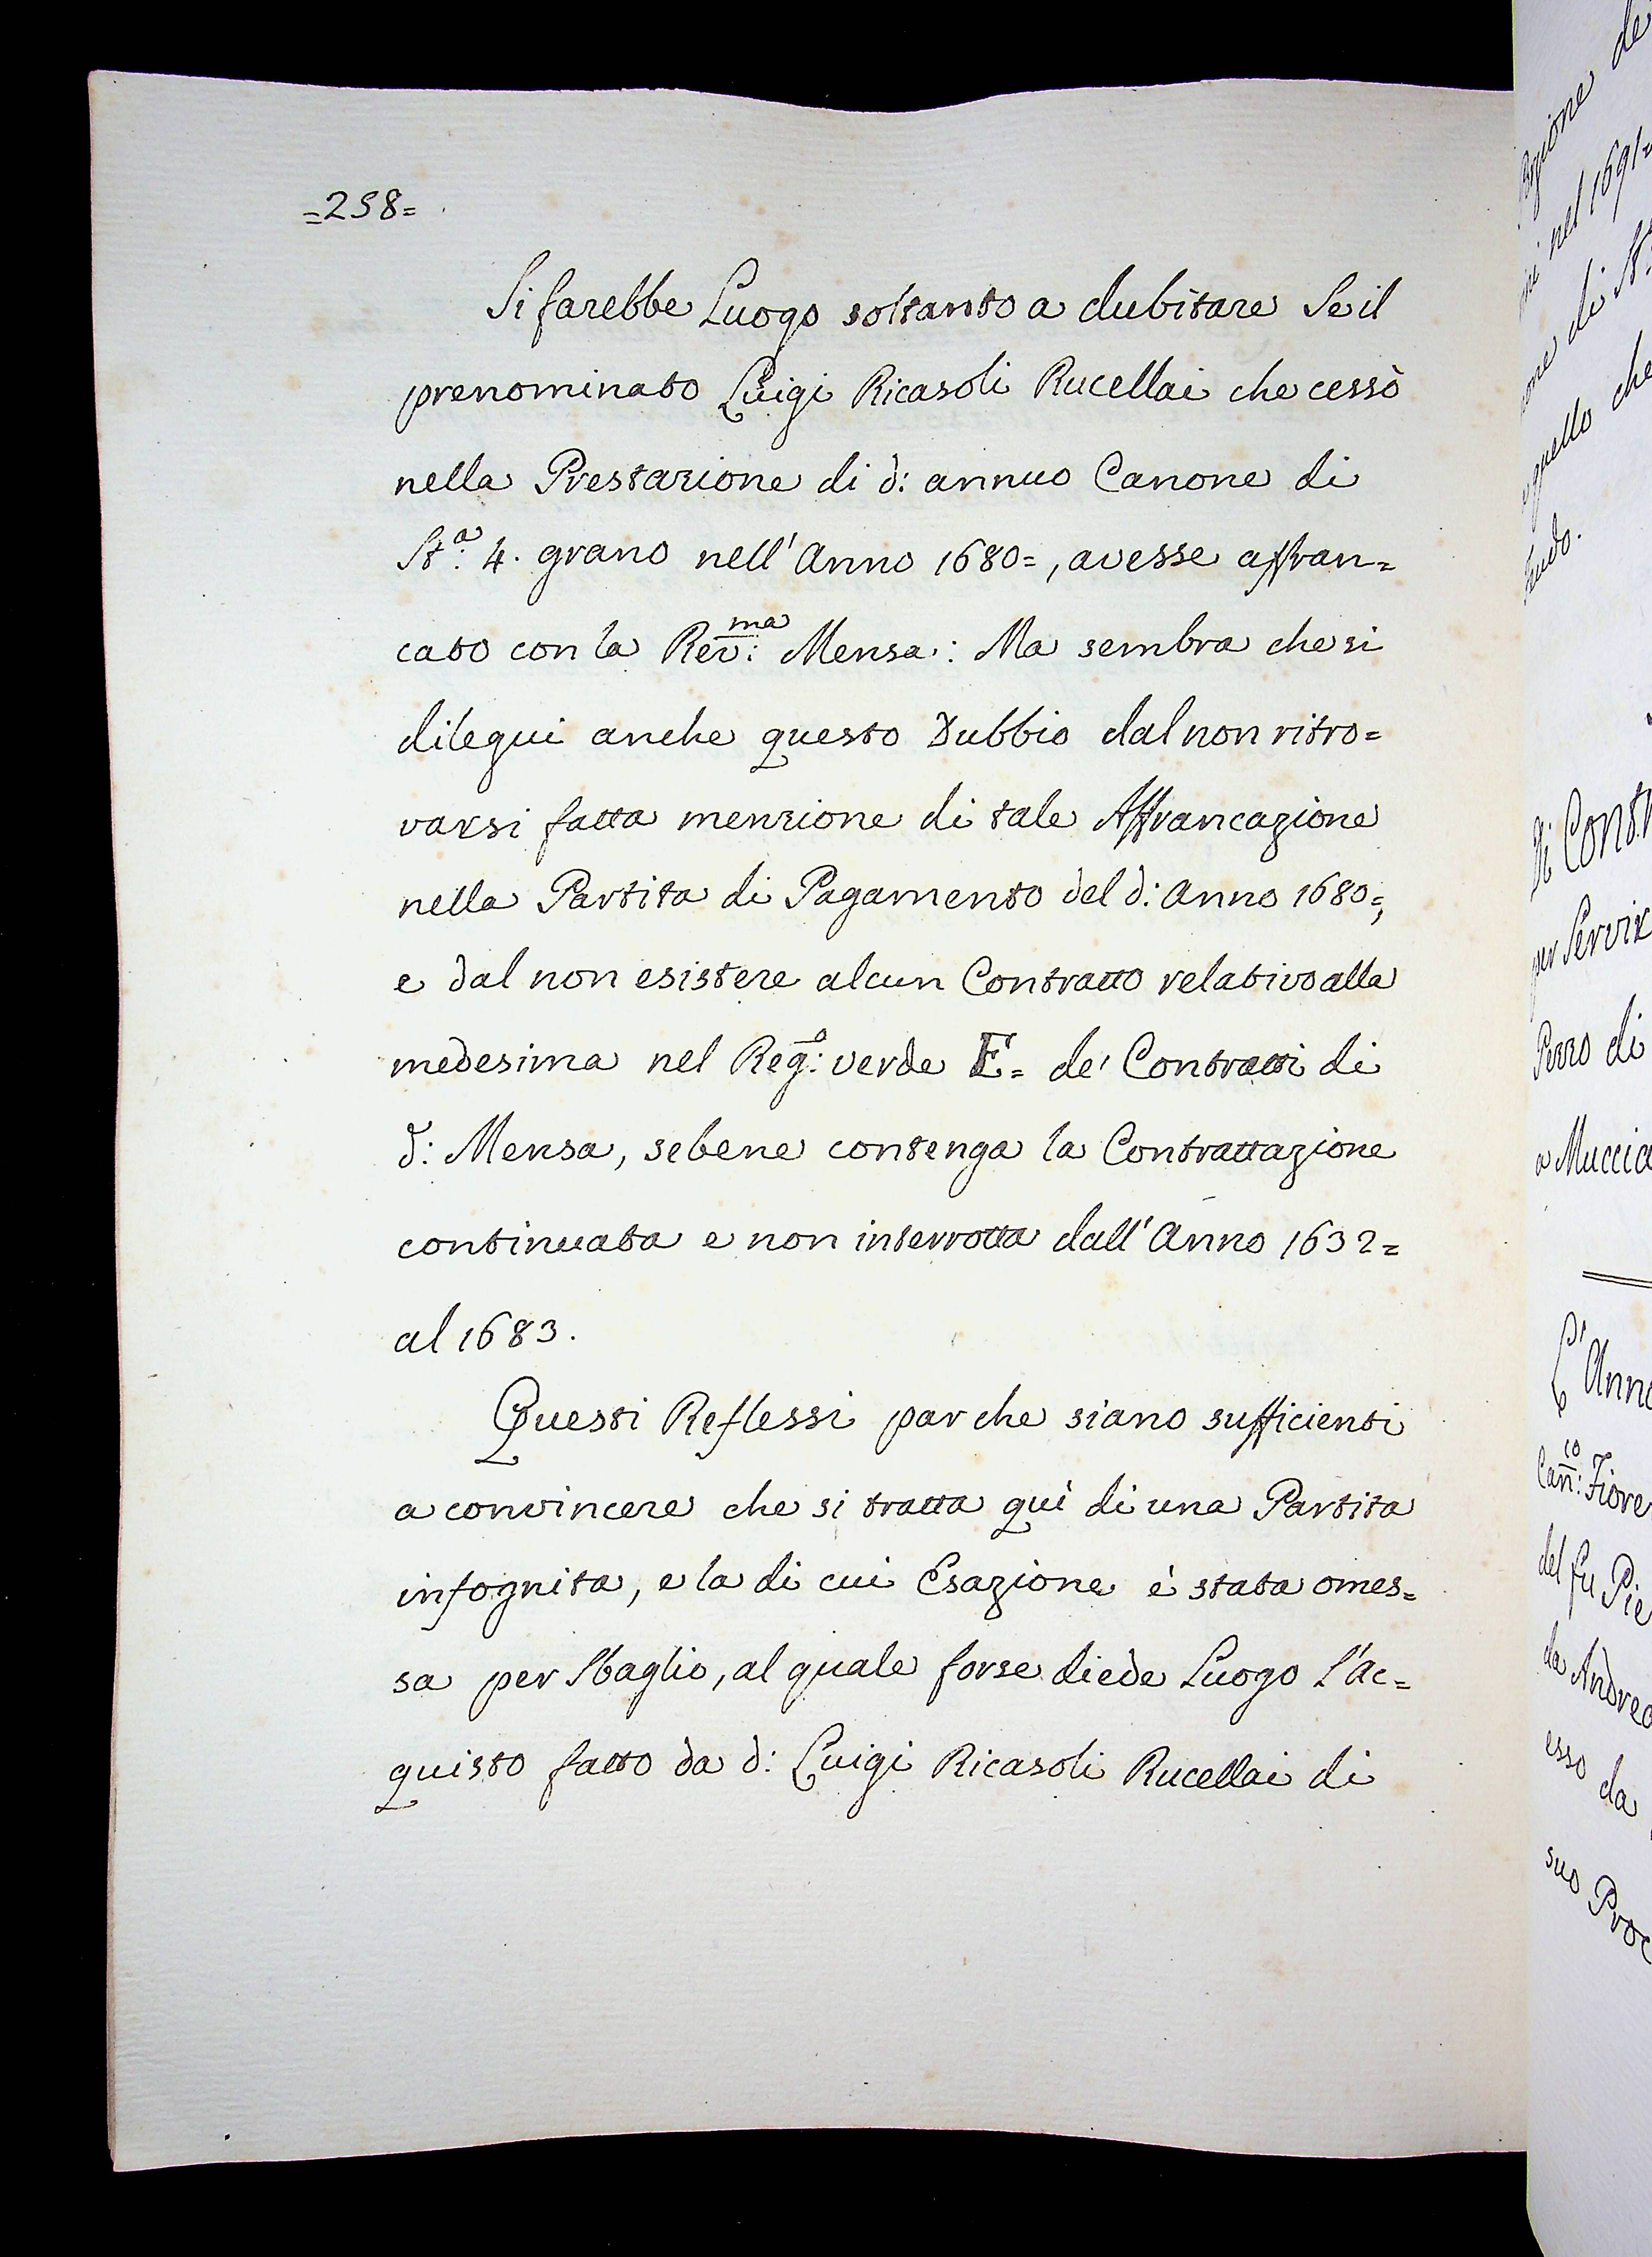 =258=
Si farebbe Luogo soltanto a dubitare Se il
prenominato Luigi Ricasoli Rucellai che cessò
nella Prestazione di d: annuo Canone di
St:ª 4. grano nell'Anno 1680=, avesse affran=
cato con la Rev:ma Mensa: Ma sembra che si
dilegui anche questo Dubbio dal non ritro=
varsi fatta menzione di tale Affrancazione
nella Partita di Pagamento del d: Anno 1680=,
e dal non esistere alcun Contratto relativo alla
medesima nel Reg:º verde E= de' Contratti di
d: Mensa, sebene contenga la Contrattazione
continuata e non interrotta dall'Anno 1632=
al 1683.
Questi Reflessi par che siano sufficienti
a convincere che si tratta quì di una Partita
infognita, e la di cui Esazione è stata omes=
sa per Sbaglio, al quale forse diede Luogo l'Ac=
quisto fatto da d: Luigi Ricasoli Rucellai di
nel 1691=
di
quello che
di Contr
per Servir
di
a Muccic
L'Anno
Can:co Fiore
del fu Pie
da Andrea
esso da
suo Proc